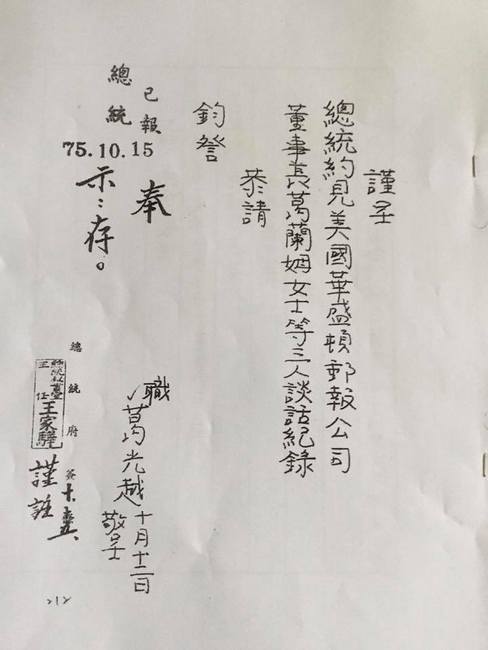 謹呈
總統約見美國華盛頓郵報公司
董事長葛蘭姆女士等三人談話紀錄
恭請
鈞詧
職葛光越十月十二日
敬呈
已報
總統
75.10.15
奉
示：存。
總統府
主任王家驊
謹註
212